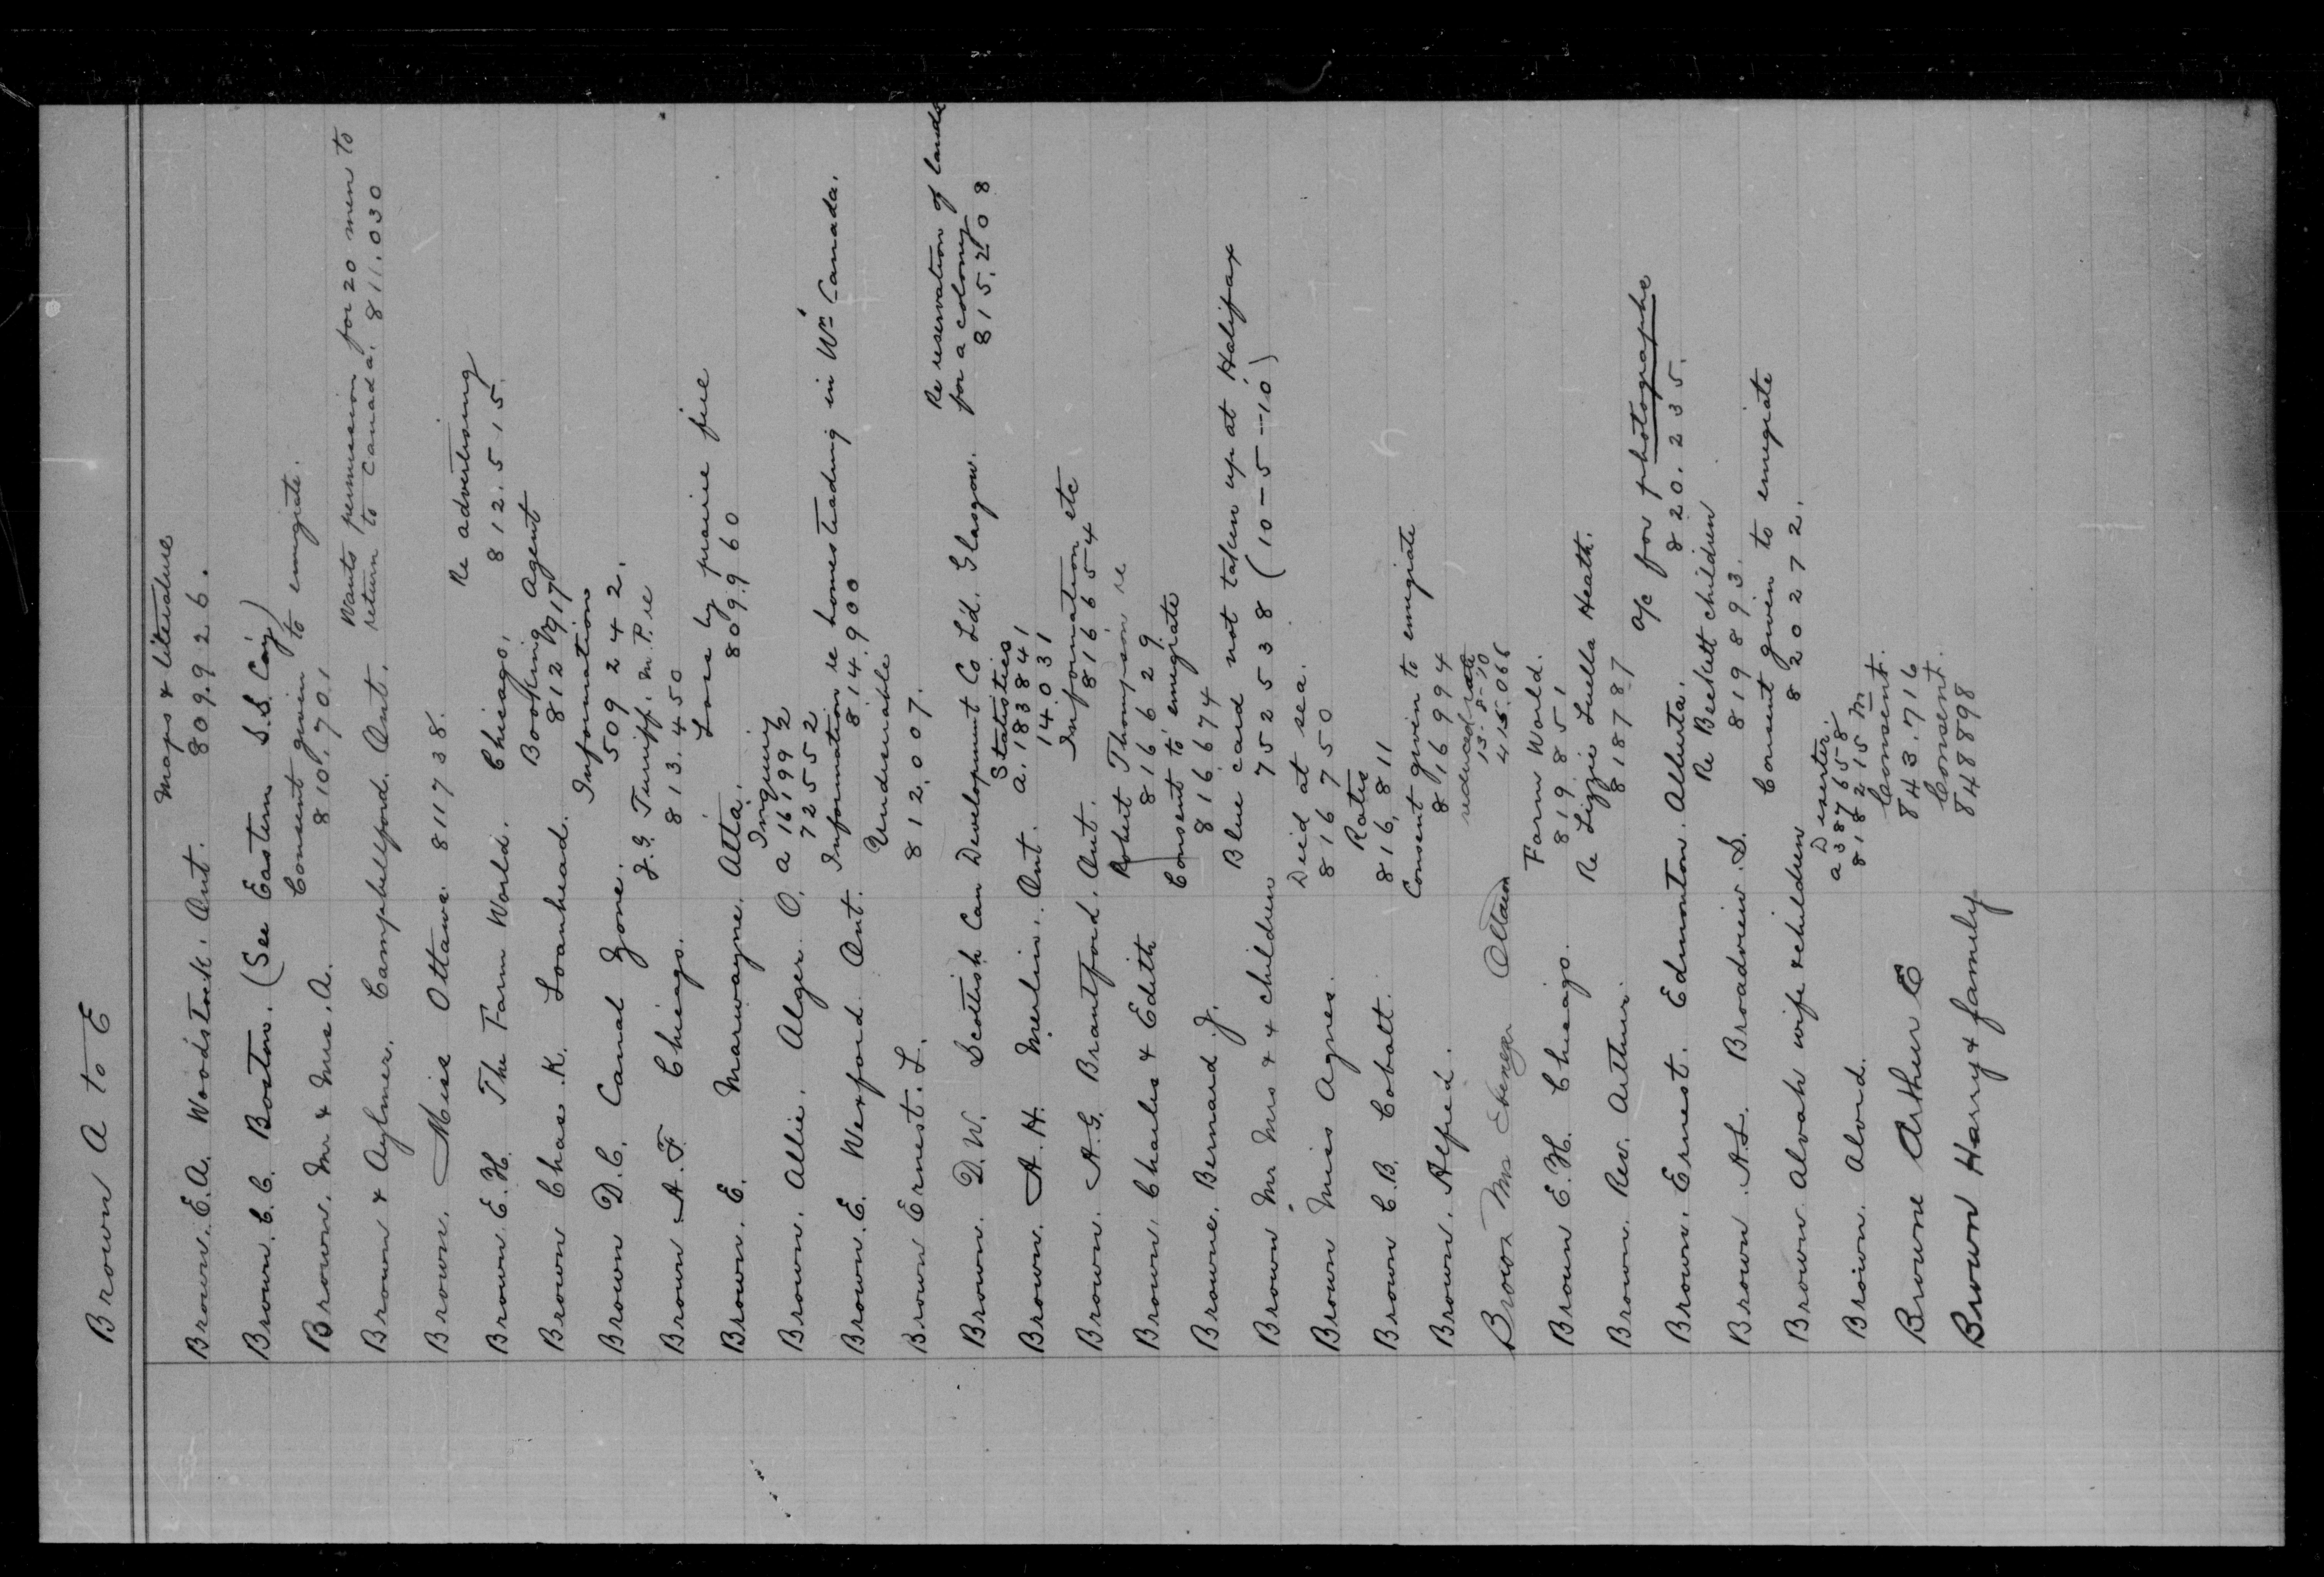 Brown A to E
Maps & literature
Brown. E. A. Woodstock. Ont. 809.926.
Brown. C. C. Boston. (See Eastern S.S. Coy)
Consent given to emigrate.
Brown. Mr & Mrs. A. 810.701
Wants permission for 20 men to
Brown & Aylmer. Campbellford. Ont. return to Canada. 811.030
Brown. Miss Ottawa 811738.
Re advertising
Brown E. H. The Farm World. Chicago. 812.515.
Booking Agent
Brown Chas. K. Loanhead. 812
Information
Brown D. C. Canal Zone. 509242.
J. G. Turiff. M.P. re
Brown. A. F. Chicago. 813.450
Loss by prairie fire
Brown. E. Marwayne. Alta. 809.960
Inquiry
Brown. Allie. Alger. O. a 16199 ½
72552
Information re homesteading in Wn Canada.
Brown. E. Wexford. Ont. 814.900
Undesirable
Brown Ernest. L. 812.007.
Re reservation of lands
Brown. D. W. Scottish Can Development Co Ld. Glasgow. for a colony
815.208
Statistics
Brown. A. H. Merlin. Ont. a. 183841
14.031
Information etc
Brown. A. G. Brantford. Ont. 816654
Robert Thompson re
Brown. Charles & Edith 816629.
Consent to emigrate
Browne. Bernard. J. 816674
Blue card not taken up at Halifax
Brown Mr Mrs & 4 children 752538 (10-5-10)
Died at sea.
Brown Miss Agnes. 816750
Rates
Brown C. B. Cobalt. 816,811
Consent given to emigrate
Brown. Alfred. 816994
reduced rate
13-5-10
Brown Mrs Ottawa 415.066
Farm World.
Brown E. H. Chicago. 819.851
Re Lizzie Luella Heath.
Brown. Rev. Arthur. 818787
a/c for photographs
Brown. Ernest. Edmonton. Alberta. 820.235.
Re Beckett children
Brown. A. L. Broadview. S. 819893.
Consent given to emigrate
Brown. Alvah wife & children 820272.
Deserter.
a 387658.
Brown. Alvord. 818215 M
Consent.
Browne Arthur E 843.716
Consent.
Brown Harry & family 848898